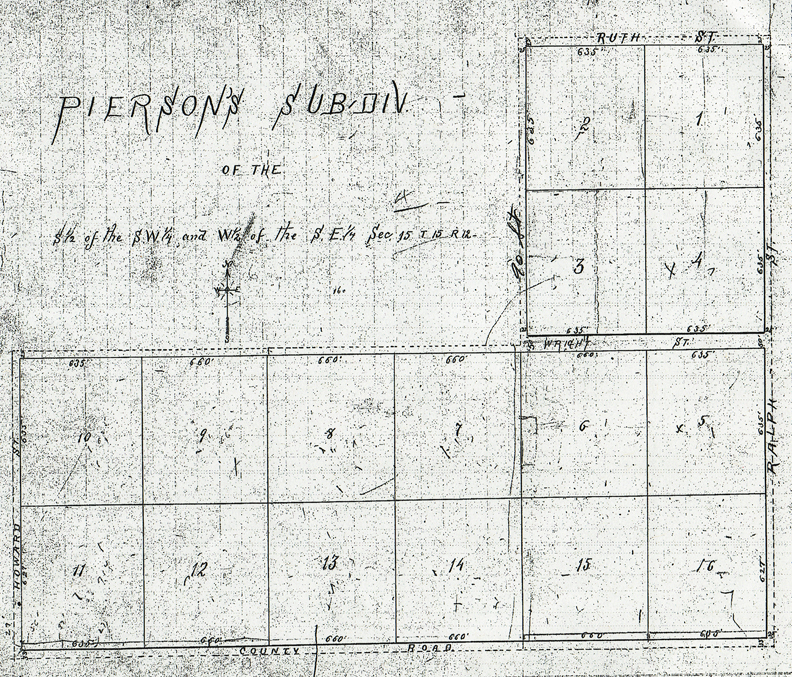 RUTH ST.
635' 635'
PIERSON'S SUB-DIV.
2 1
625 635'
OF THE
4
S½ of the S.W¼ and W½ of the S.E.¼ Sec. 15 T 15 R 12.
3 4
635'
ST.
16.
635' 635'
WRIGHT ST.
635' 660' 660' 660' 660' 635'
10 9 8 7 6 5
635' 635'
HOWARD ST.
RALPH
11 12 13 14 15 16
627' 627'
635' 660' 660' 660' 660' 605'
COUNTY ROAD